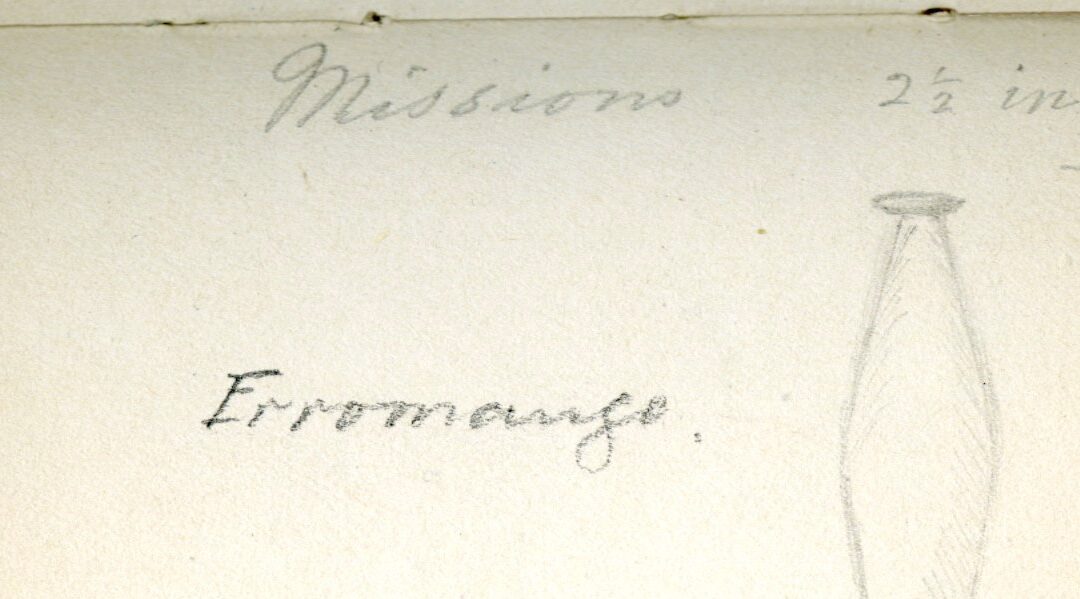 Missions
2½ in
Erromango.